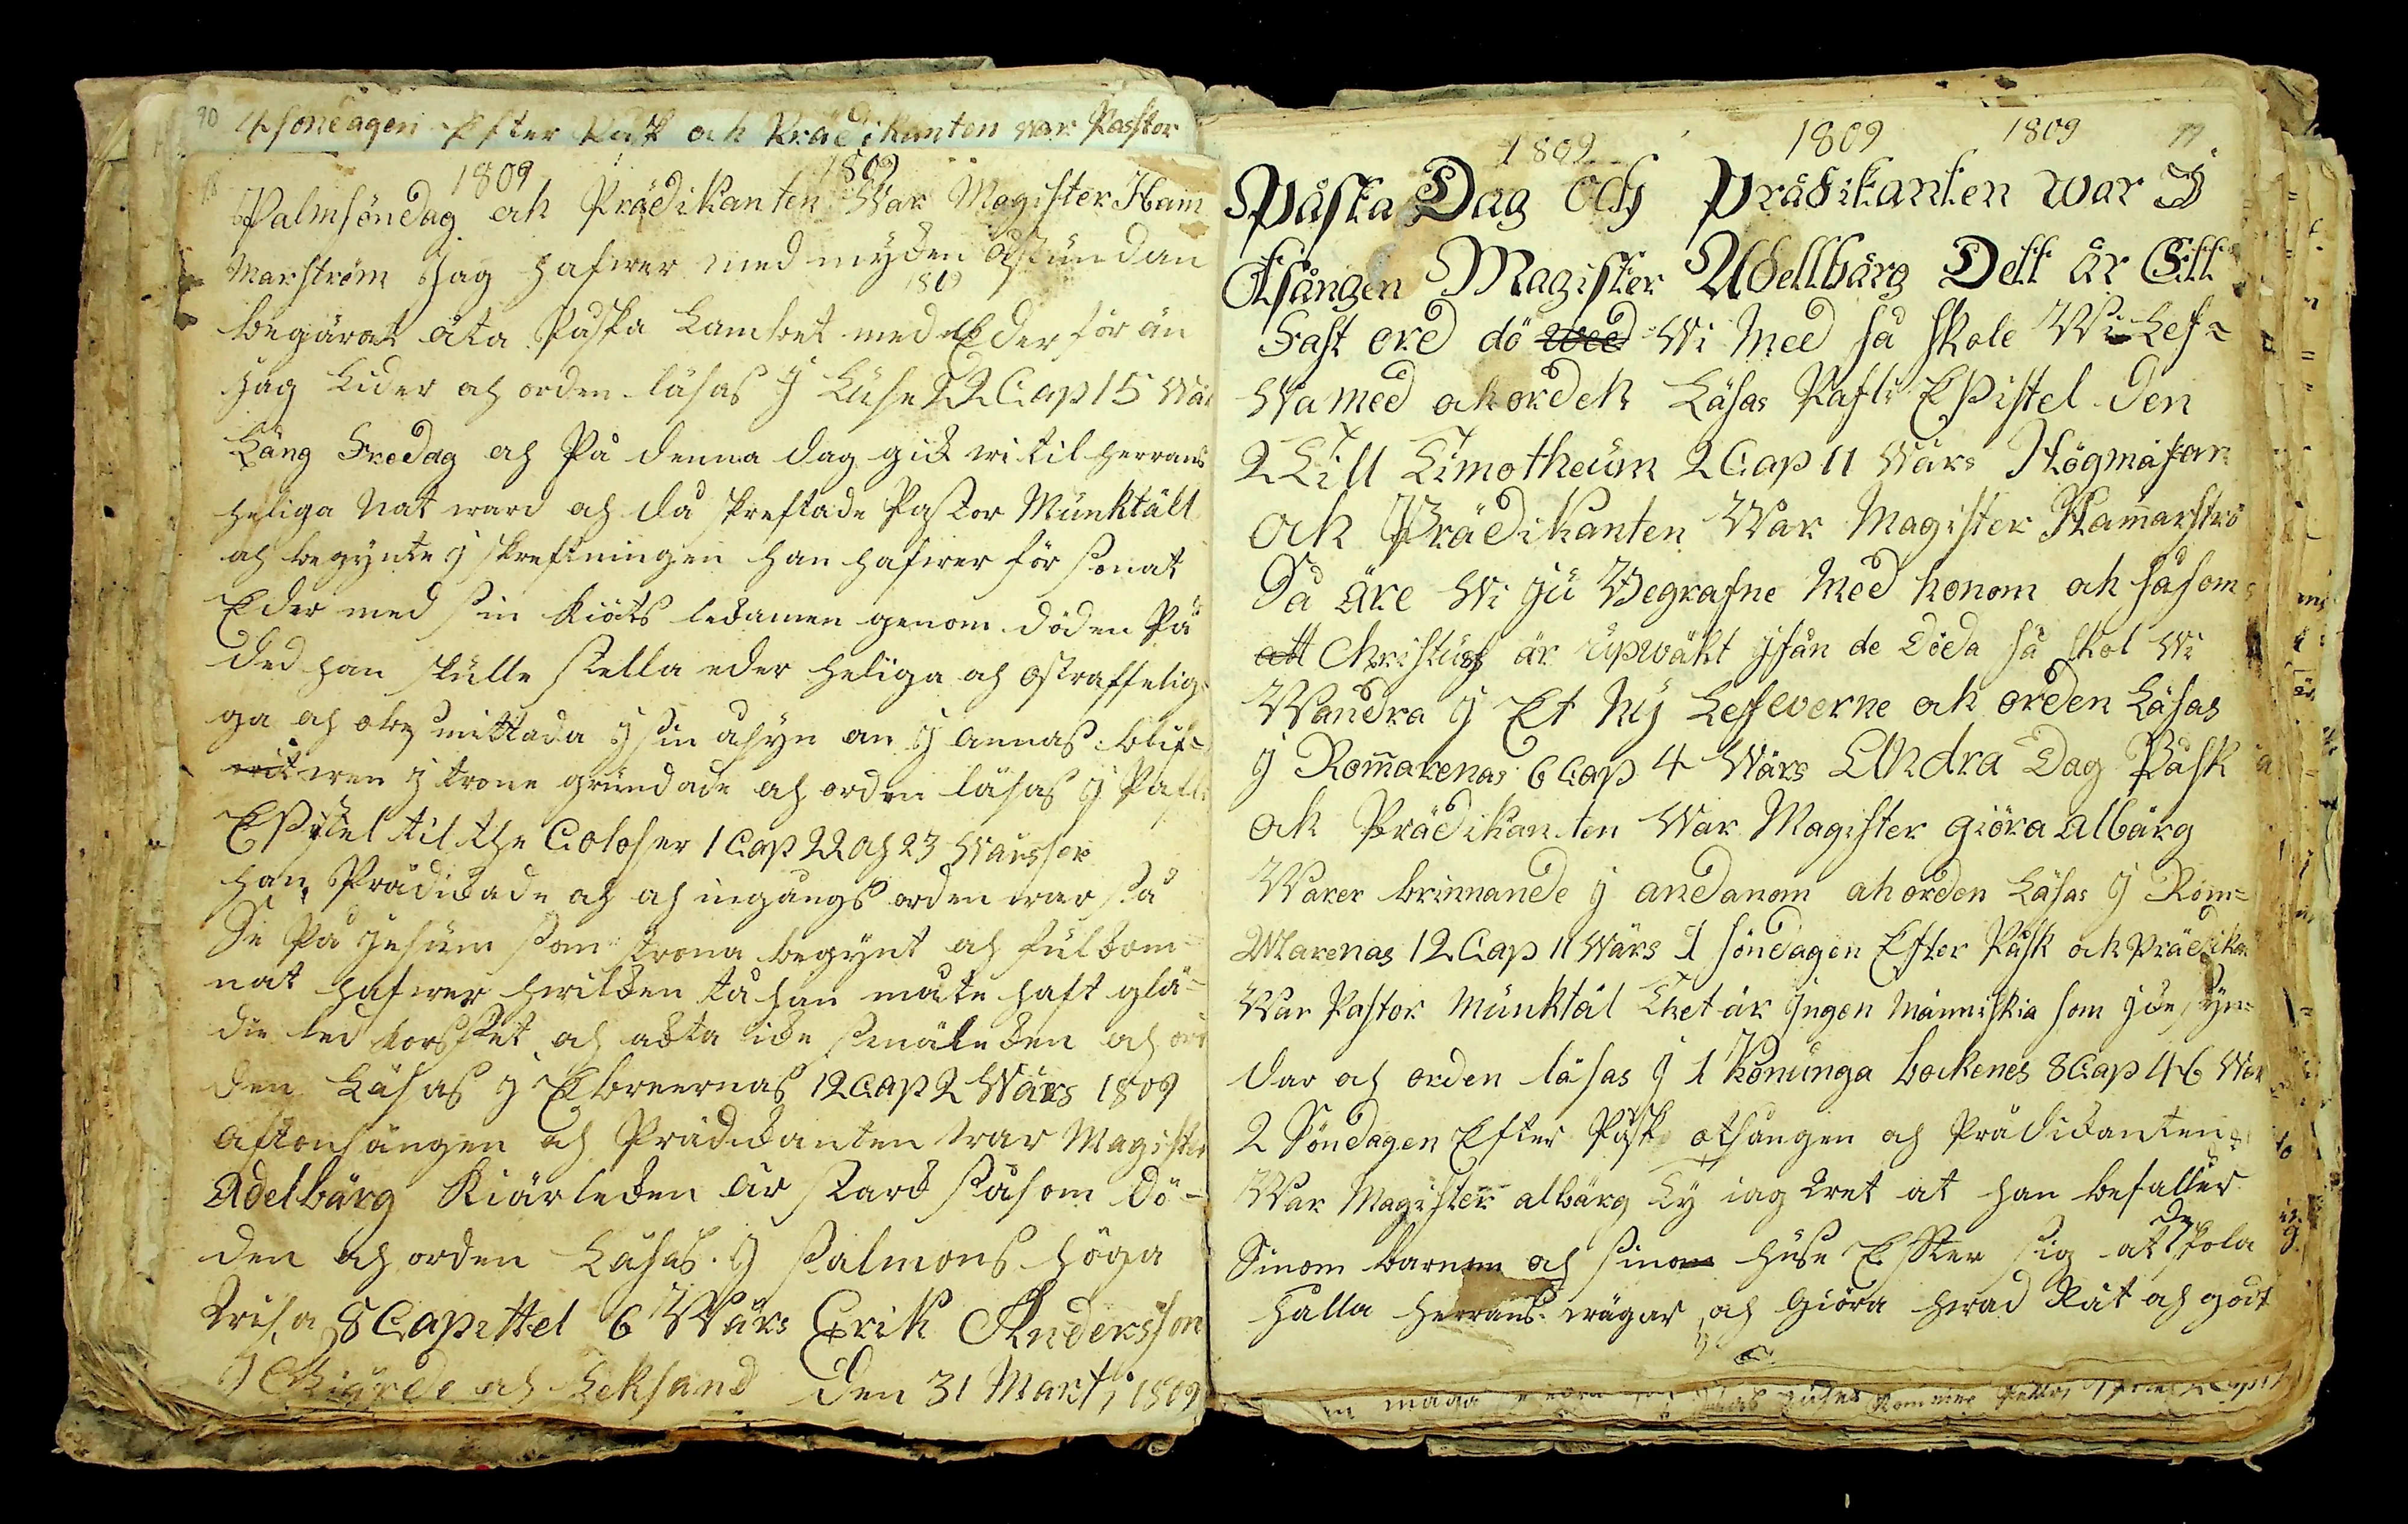 90 4 söndagen Efter Påsk ok Prädikanten var Passtor
1809 1809
Palmsöndag ok Prädikanten War Magister Ham
marström Jag hafwer med myken åstundan
1809
begärat äta Påska Lambet med Eder för än
Jag Lider och orden läsas J Luhe 22 Cap 15 Wär
Lång Fredag och På denna dag gick wi til herrans
heliga Natward och då skreftade Pastor Munktäll
och begynte j skreftningen han hafwer försonat
Eder med sin Kiöts lekamen genom döden På
ded han skulle stella eder heliga och ostraffelig=
ga och obesmittada j sin åsyn om j annas blif=
wen j trone grundade och orden läsas j Pafli
Epistel til the Coloser 1 Cap 22 och 23 Wärsser
han Prädickade och och ingångs orden war så
Se På Jesum som trona begynt och fulkom=
nat hafwer hwilken tå han måte haft glä=
die led korsset och ackta icke smäleken och or
den Läsas j Ebreernas 12 Cap 2 Wärs 1809
aftonsången och Prädickanten war Magister
Adelbärg Kiärleken är stark såsom Dö=
den och orden Läsas J Salmons höga
Wisa 8 Capittel 6 Wärs Erik Andersson
J Giärde och Leksand Den 31 Marti 1809
1809 1809 1809
Påska Dag Och Prädikanten war J
Otsången Magister Adellbärg Dett är Ett
Fast ord dö wed Wi Med så skole Wi Lef=
Wa med ok orden Läsas Pafli Epistel den
2 Till Timotheum 2 Cap 11 Wärs Högmäsan
ok Prädikanten War Magister Ham̄arströ
Så äre Wi ju Begrafne Med honom ok såsom
att Christus är upwäkt ifån de Döda så skol Wi
Wandra j Et Nij Lefwerne ok orden Läsas
j Rom̄arenas 6 Cap 4 Wärs Andra Dag Påsk
ok Prädikanten War Magister Giöra albärg
Warer brinnande j andanom ok orden Läsas J Rom=
Marenas 12 Cap 11 Wärs 1 söndagen Efter Påsk ok Prädikan
War Pastor Munktäl Thet är Jngen Människia som icke syn=
dar och orden läsas J 1 Konunga bockenes 8 Cap 46 Wär
2 Söndagen Efter Påsk otsången och Prädickanten
War Magister albärg Ty iag wet at han befaller
de
Sinom barnom och sino huse Efter sig at skola
halla herrans wägar och Giöra hwad Rät och godt